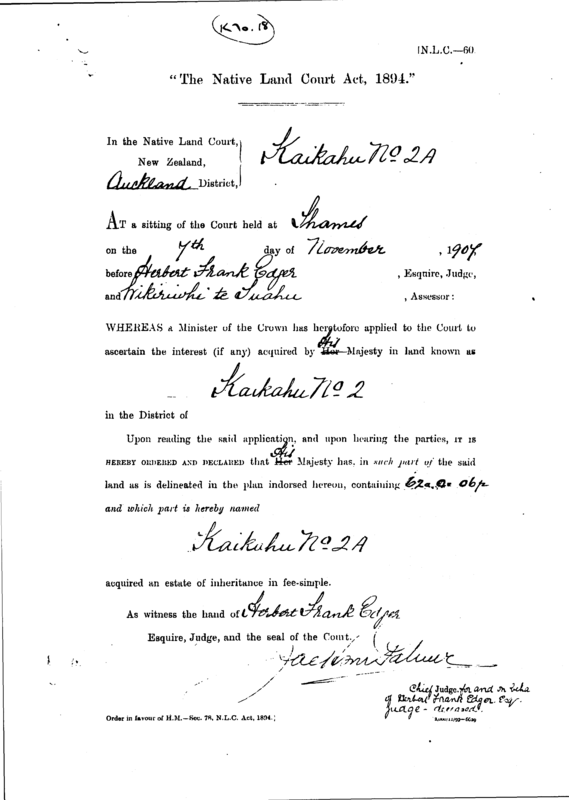 K No. 18
[N.L.C.—60
"The Native Land Court Act, 1894."
In the Native Land Court,
New Zealand,
Auckland District,
Kaikahu No 2A
AT a sitting of the Court held at Thames
on the 7th day of November , 1907
before Herbert Frank Edger , Esquire, Judge,
and Wikiriwhi te Tuahu , Assessor:
WHEREAS a Minister of the Crown has heretofore applied to the Court to
ascertain the interest (if any) acquired by Her His Majesty in land known as
Kaikahu No 2
in the District of
Upon reading the said application, and upon hearing the parties, IT IS
HEREBY ORDERED AND DECLARED that Her His Majesty has, in such part of the said
land as is delineated in the plan indorsed hereon, containing 62a. 0. 06p
and which part is hereby named
Kaikahu No 2A
acquired an estate of inheritance in fee-simple.
As witness the hand of Herbert Frank Edger
Esquire, Judge, and the seal of the Court.
Chief Judge, for and on beha
of Herbert Frank Edger Esq.
Judge - deceased.
Order in favour of H.M.—Sec. 78, N.L.C. Act, 1894.]